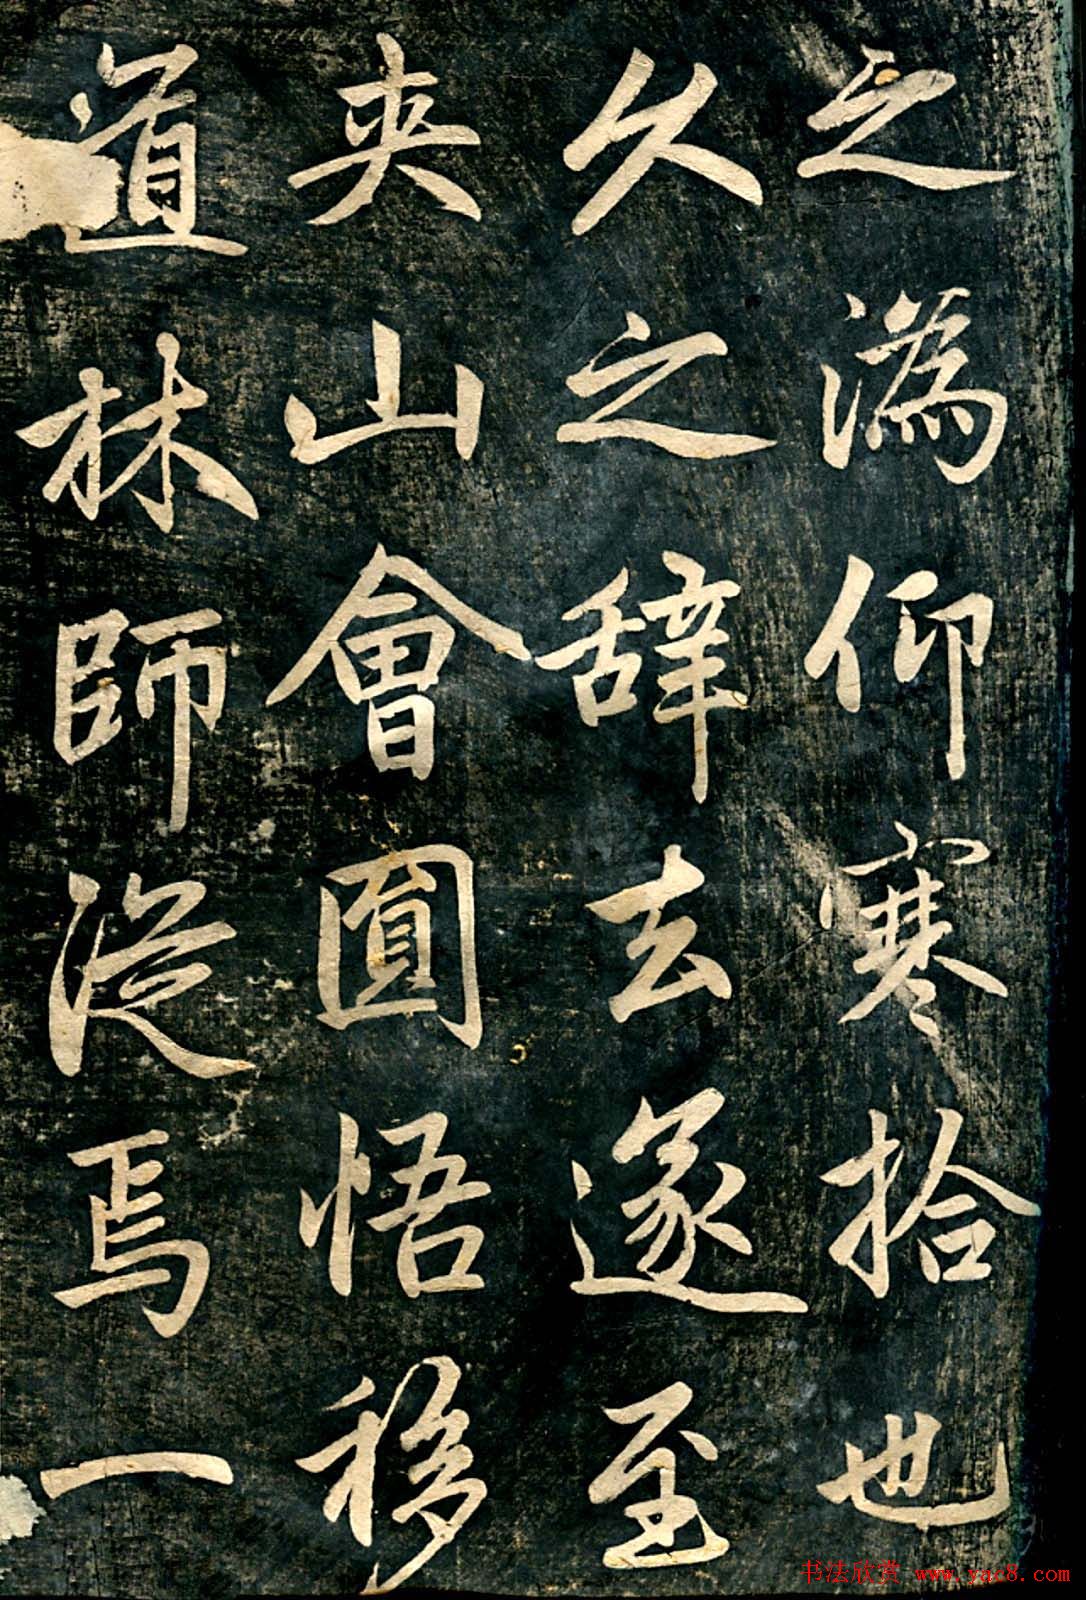 之溈仰寒拾也
久之辞去遂至
夹山會圓悟移
道林師從焉一
书法欣赏 www.yac8.com